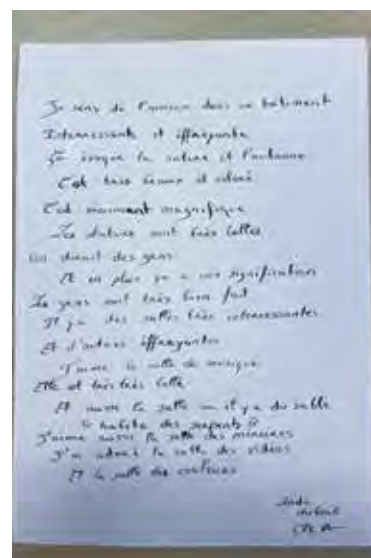 Je sens de l'amour dans ce bâtiment
Interessante et effrayante
Ça évoque la nature et l'automne
C'est très beaux et coloré
C'est vraiment magnifique
Les statues sont très belles
On dirait des gens
Et en plus ça a une signification
Les gens ont très bien fait
Il y a des salles très interessantes
Et d'autres effrayantes
J'aime la salle de musique
Elle est très très belle
Et aussi la salle où il y a du sable
habite des serpents
J'aime aussi la salle des
J'ai adoré la salle des vidéos
Et la salle des couleurs